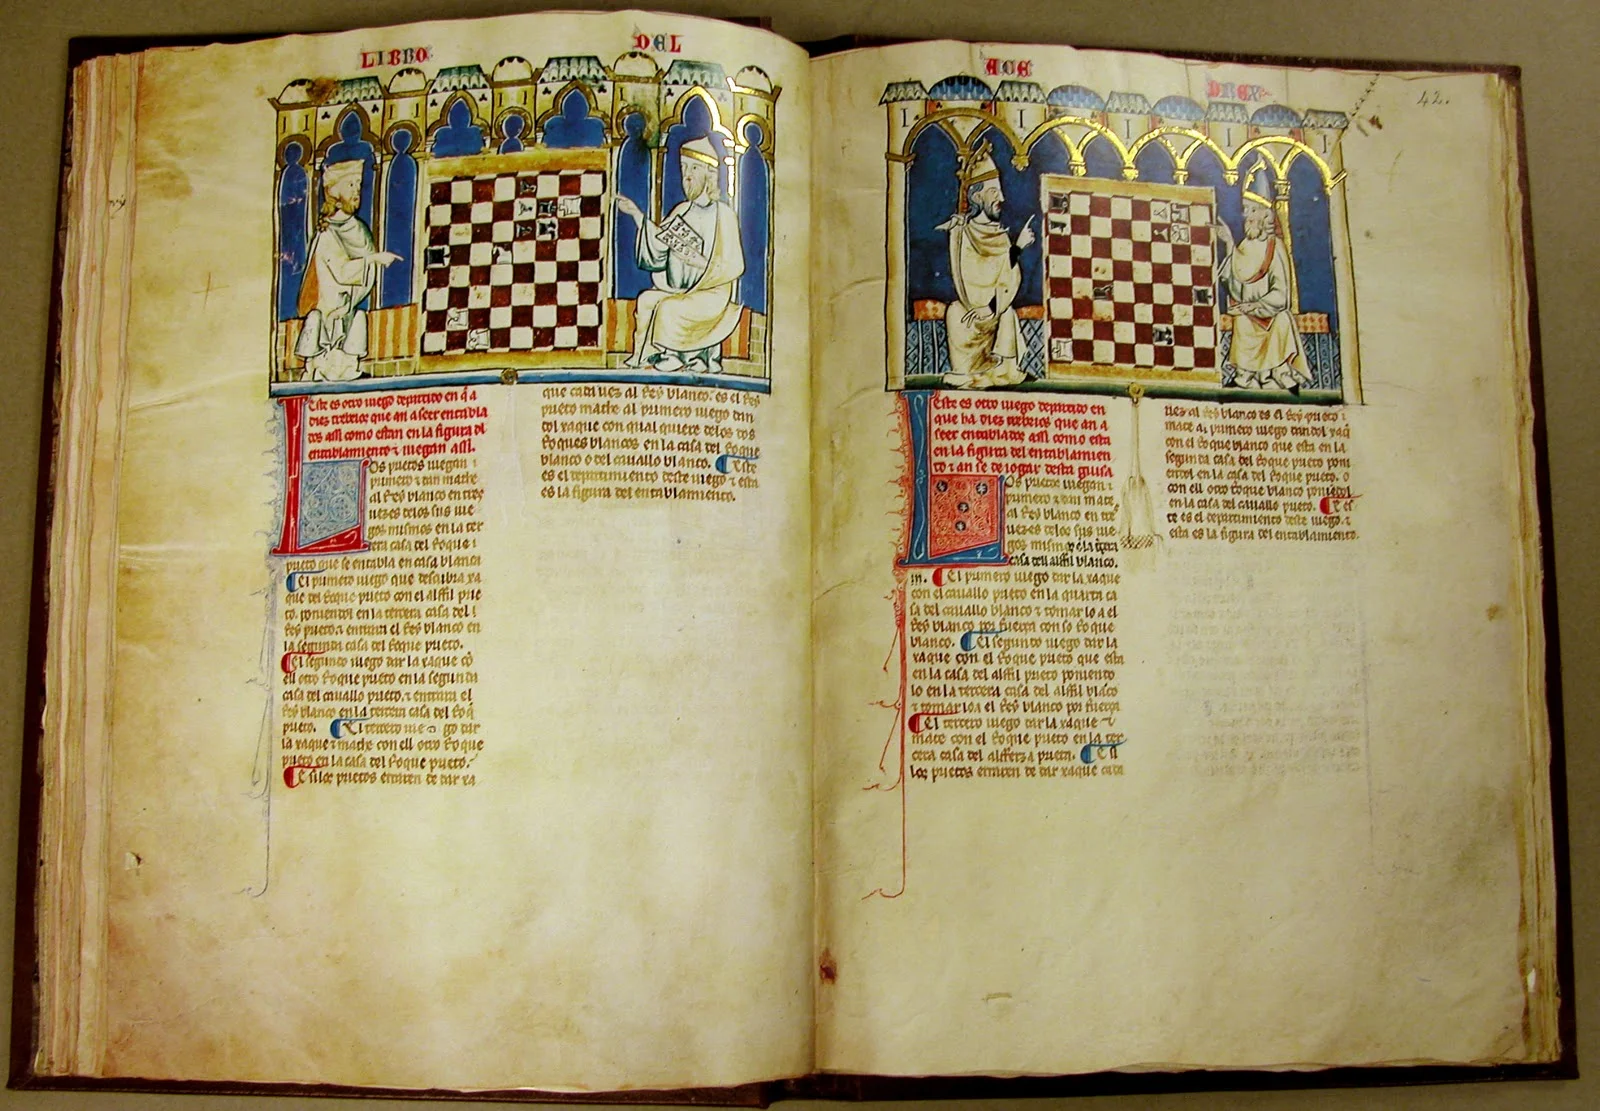 LIBRO
DEL
Este es otro iuego departido en q̃ a
diez trebeios que an a seer entabla
dos assi como estan en la figura dl
entablamiento ⁊ iuegan assi.
Los prietos iuegan
primero ⁊ dan mathe
al Rey blanco en tres
uezes delos sus iue
gos mismos en la ter
cera casa del Roque
prieto que se entabla en casa blanca
El primero iuego que descubra xa
que del Roque prieto con el alffil prie
to. poniendol en la tercera casa del
Rey prieto. ⁊ entrara el Rey blanco en
la segunda casa del Roque prieto.
El segundo iuego dar la xaque cõ
ell otro Roque prieto en la segunda
casa del cauallo prieto. ⁊ entrara el
Rey blanco en la tercera casa del Roq̃
prieto. El tercero iue go dar
la xaque ⁊ mathe con ell otro Roque
prieto en la casa del Roque prieto.
E si los prietos erraren de dar xa
que cada uez al Rey blanco. es el Rey
prieto mathe al primero iuego dan
dol xaque con qual quiere delos dos
Roques blancos en la casa del Roque
blanco o del cauallo blanco. Este
es el departimiento deste iuego ⁊ esta
es la figura del entablamiento.
ACE
DREX
42.
Este es otro iuego departido en
que ha diez trebeios que an a
seer entablados assi como esta
en la figura del entablamien
to ⁊ an se de iogar desta guisa
Los prietos iuegan
primero ⁊ dan mate
al Rey blanco en tres
uezes delos sus iue
gos mismos en la tercera
casa dell alffil blanco.
El primero iuego dar la xaque
con el cauallo prieto en la quarta ca
sa del cauallo blanco ⁊ tomar lo a el
Rey blanco por fuerça con so Roque
blanco. El segundo iuego dar la
xaque con el Roque prieto que esta
en la casa del alffil prieto poniendo
lo en la tercera casa del alffil blãco
⁊ tomar lo a el Rey blanco por fuerça
El tercero iuego dar la xaque ⁊
mate con el Roque prieto en la ter
cera casa del alfferza prieta. E si
los prietos erraren de dar xaque cada
uez al Rey blanco es el Rey prieto
mate al primero iuego dandol xaq̃
con el Roque blanco que esta en la
segunda casa del Roque prieto poni
endol en la casa del Roque prieto. o
con ell otro Roque blanco poniẽdol
en la casa del cauallo prieto. E es
te es el departimiento deste iuego. ⁊
esta es la figura del entablamiento.